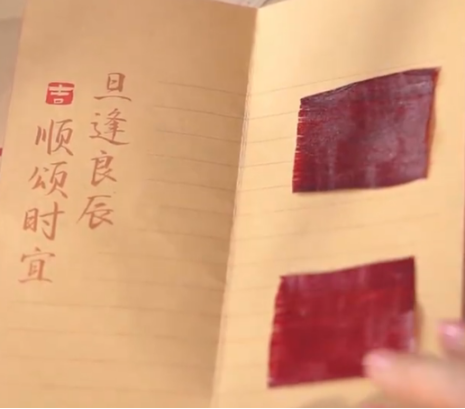 旦逢良辰
顺颂时宜
吉